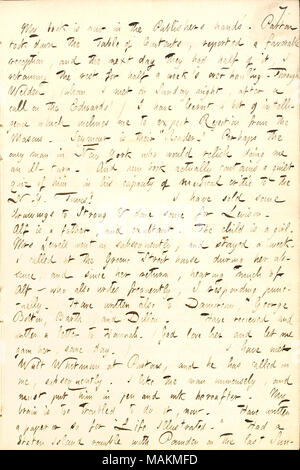 7
My book is now in the Publishers hands. Parton
took down the Table of Contents, reported a favorable
reception, and the next day they had half of it. I
retaining the rest for half a week's over hauling. Through
Welden (whom I met on Sunday night, after a
call on the Edwards') I have learnt a bit of intelli-
gence which inclines me to expect Rejection from the
Masons. Seymour is their "Reader." Perhaps the
only man in New York who would relish doing me
an ill turn. And my book actually contains a quiet
quiz of him in his capacity of musical critic to the
N. Y. Times! I have sold some
drawings to Strong & done some for Levison.
Alf is a father, and exultant. The child is a girl.
Mrs Levison went on subsequently, and stayed a week.
I called at the Greene Street house during her ab-
sence and since her return, hearing much of
Alf — who also writes frequently, I responding punc-
tually. Have written also to Damoreau, George
Bolton, Barth and Dillon. Have received and
written a letter to Hannah. God love her and let me
gain her some day. I have met
Walt Whitman at Partons, and he has called on
me, subsequently. I like the man immensely, and
must put him in pen and ink hereafter. My
brain is too troubled to do it, now. Have written
a paper or so for "Life Illustrated." Had a
Staten Island ramble with Pounden on the last Sun-
alamy
Image ID: MAKMFD
www.alamy.com